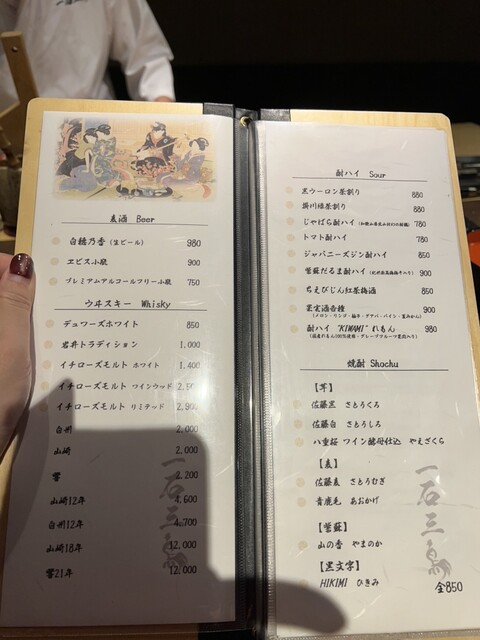 麦酒 Beer
白穂乃香 (生ビール) 980
ヱビス小瓶 900
プレミアムアルコールフリー小瓶 750
ウヰスキー Whisky
デュワーズホワイト 850
岩井トラディション 1,000
イチローズモルト ホワイト 1,400
イチローズモルト ワインウッド
イチローズモルト リミテッド 2,900
白州 2,000
山崎 2,000
響 2,200
山崎12年 4,600
白州12年 4,700
山崎18年 12,000
響21年 12,000
一石三鳥
酎ハイ Sour
黒ウーロン茶割り 880
掛川緑茶割り 780
じゃばら酎ハイ 780
トマト酎ハイ 780
ジャパニーズジン酎ハイ 850
紫蘇だるま酎ハイ 900
ちえびじん紅茶梅酒 850
果実酒各種 900
(メロン・リンゴ・柚子・アナバ・パイン・夏みかん)
酎ハイ "KIWAMI" れもん 980
(国産れもん100%使用・グレープフルーツ果肉入り)
焼酎 Shochu
【芋】
佐藤黒 さとうくろ
佐藤白 さとうしろ
八重桜 ワイン酵母仕込 やえざくら
【麦】
佐藤麦 さとうむぎ
青鹿毛 あおかげ
【紫蘇】
山の香 やまのか
【黒文字】
HIKIMI ひきみ
全850
一石三鳥